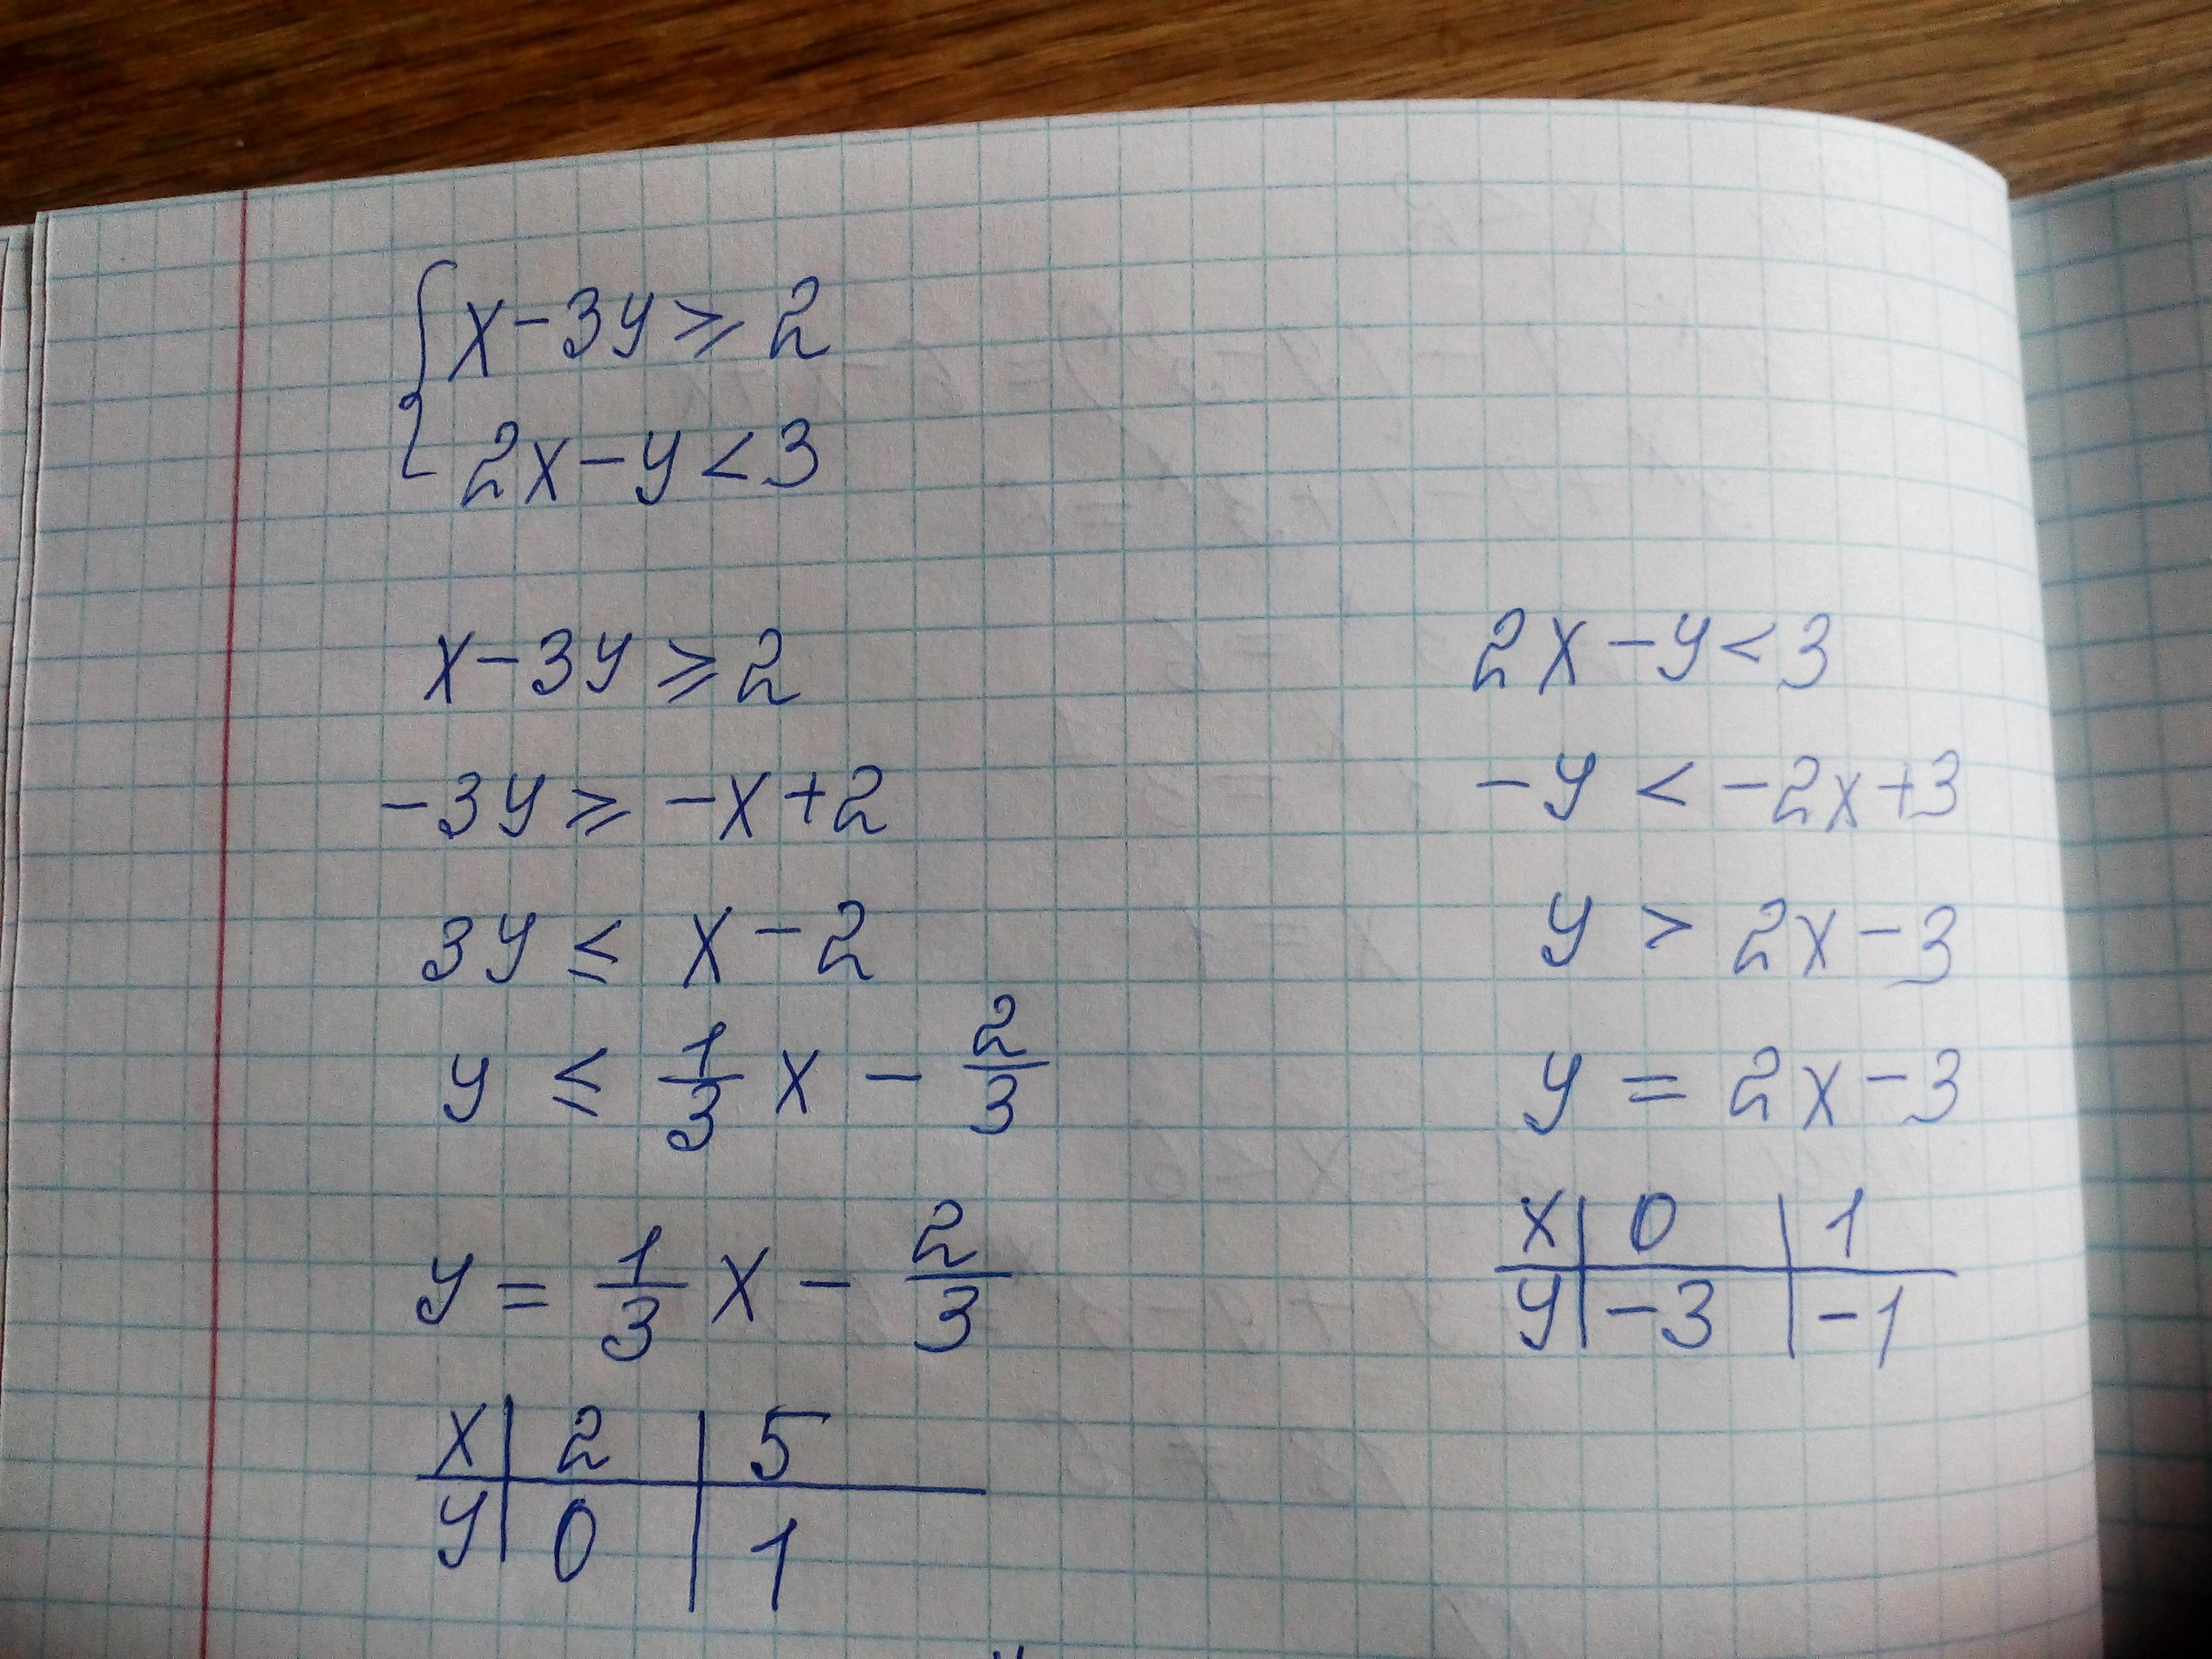 {x-3y⩾2
2x-y<3
x-3y⩾2
-3y⩾-x+2
3y⩽x-2
y⩽1/3x-2/3
y=1/3x-2/3
x|2|5
y|0|1
2x-y<3
-y<-2x+3
y>2x-3
y=2x-3
x|0|1
y|-3|-1